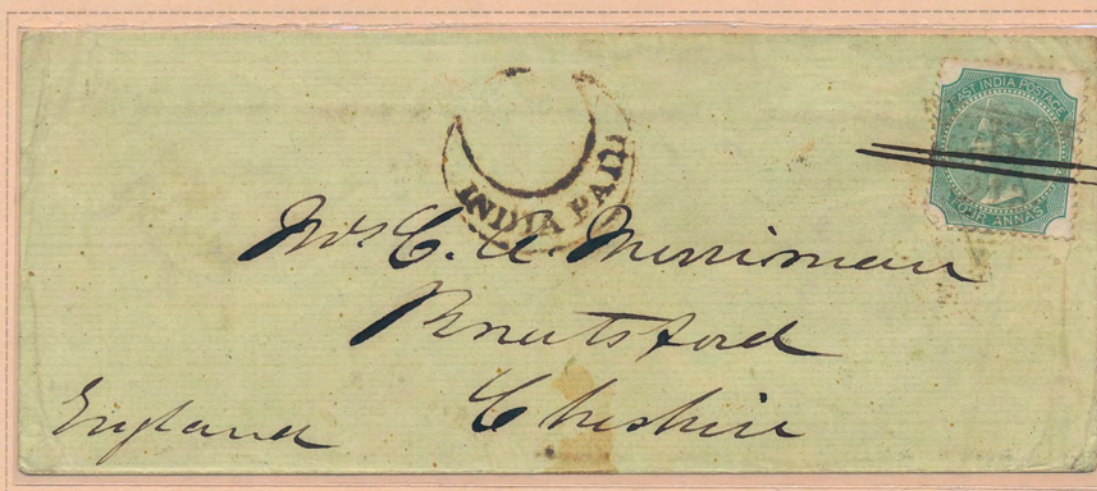 EAST INDIA POSTAGE
FOUR ANNAS
INDIA PAID
Mrs C. A. Merriman
Knutsford
Cheshire
England